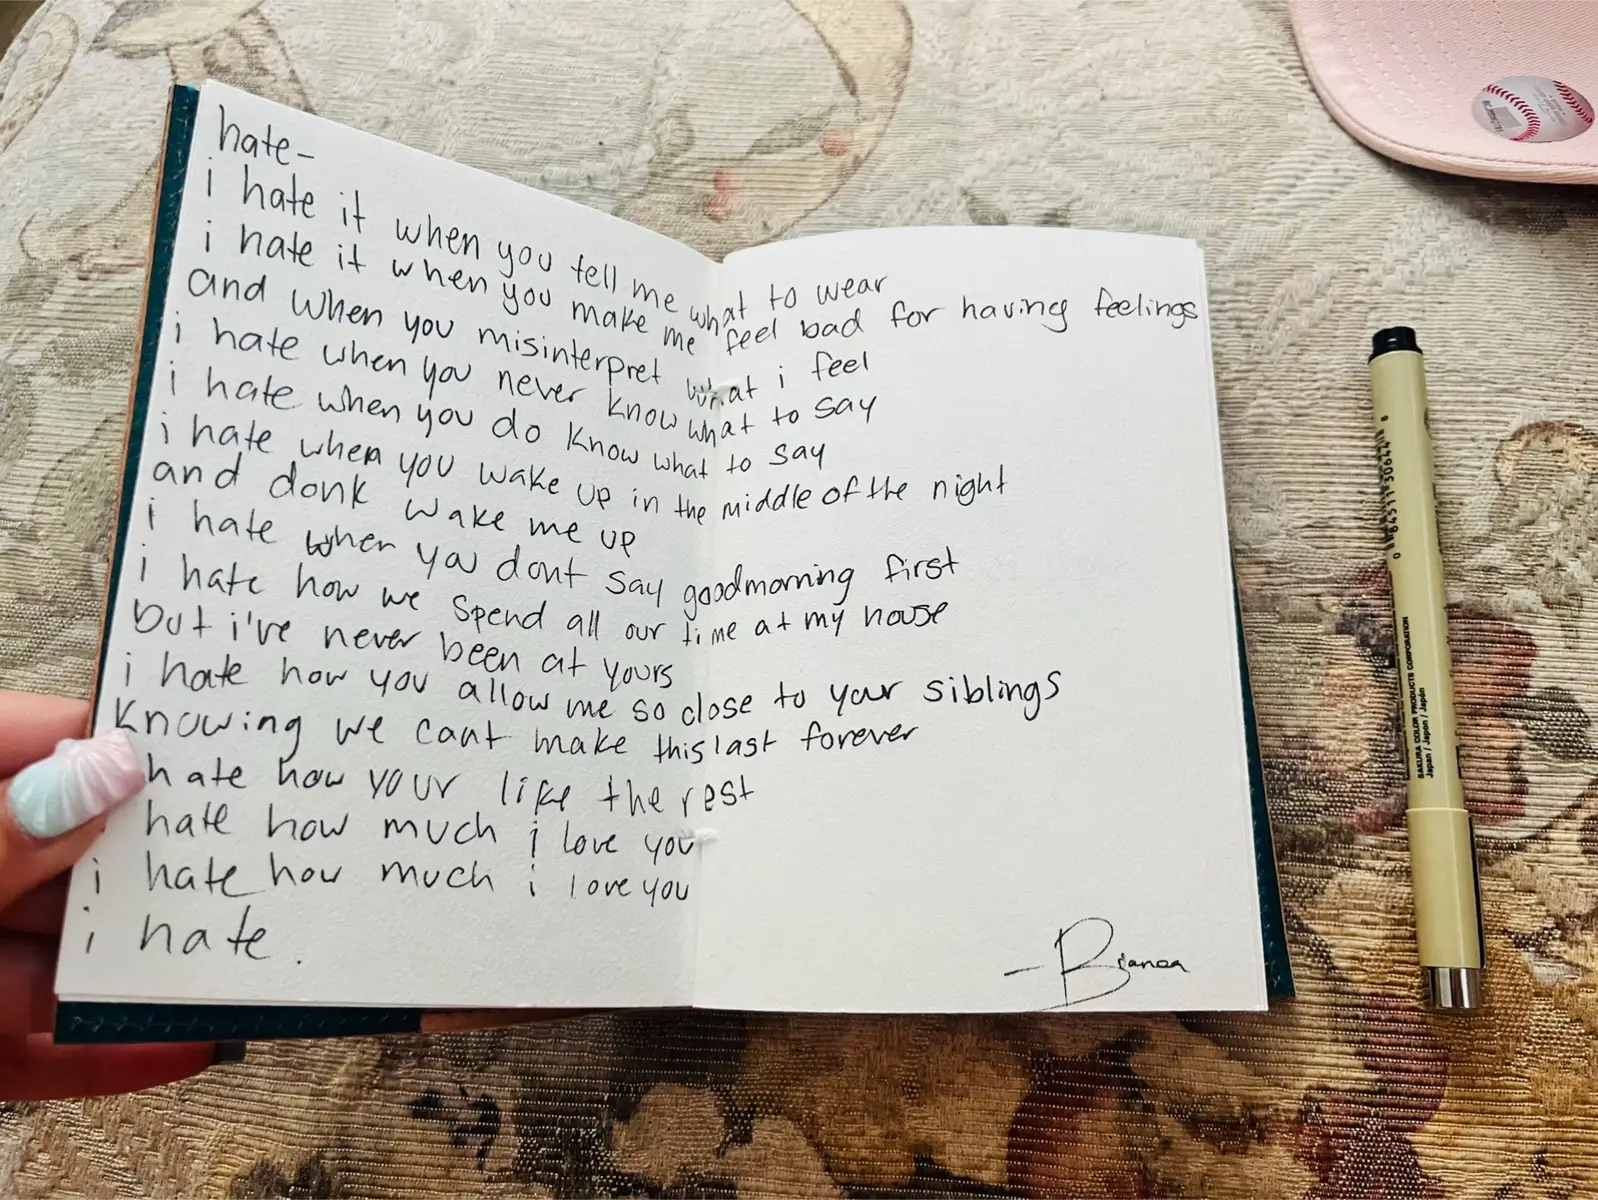 hate-
i hate it when you tell me what to wear
i hate it when you make me feel bad for having feelings
and when you misinterpret what i feel
i hate when you never know what to say
i hate when you do know what to say
i hate when you wake up in the middle of the night
and donk wake me up
i hate when you dont say goodmorning first
i hate how we spend all our time at my house
but i've never been at yours
i hate how you allow me so close to your siblings
knowing we cant make this last forever
hate how your like the rest
hate how much i love you
i hate how much i love you
i hate.
-Bianca
0 84511 30644 8
SAKURA COLOR PRODUCTS CORPORATION
Japan / Japon / Japón